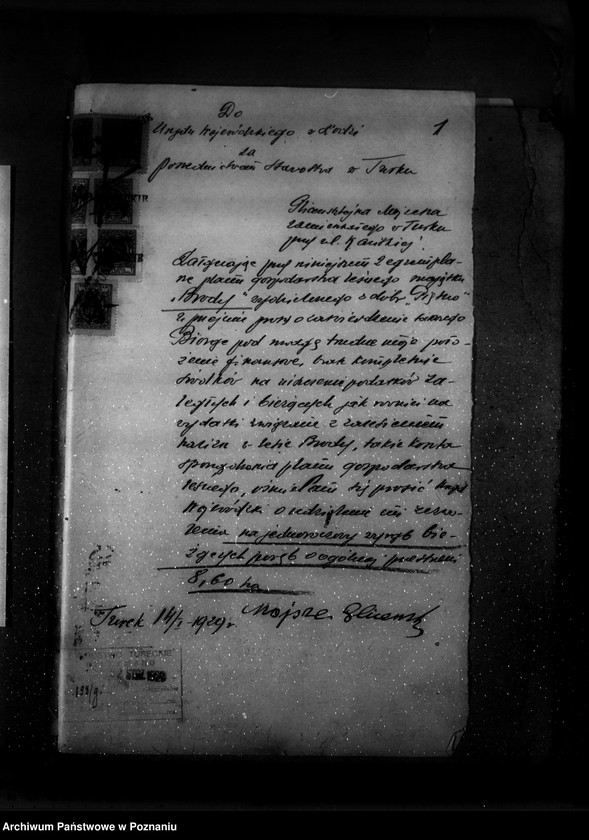 Do
1
Urzędu Wojewódzkiego w Łodzi
za
Pośrednictwem Starostwa w Turku
Mojżesza
zamieszkałego w Turku
przy ul. Kaliskiej
Załączając przy niniejszem 2 egzempla-
rze planu gospodarstwa leśnego majątku
"Brody" wydzielonego z dóbr
z prośbą o zatwierdzenie takowego
Biorąc pod uwagę trudne moje poło-
żenie finansowe, brak kompletnie
środków na uiszczenie podatków za-
ległych i bieżących jak również na
wydatki związane z zalesieniem
halizn w lesie Brody, także koszta
sporządzenia planu gospodarstwa
leśnego, ośmielam się prosić Urząd
Wojewódzki o udzielenie mi zezwo-
lenia na jednoroczny wyrąb bie-
żących poręb o ogólnej przestrzeni
8,60 ha
Turek 14/I-1929 r. Mojsze
STAROSTWO TURECKIE
Archiwum Państwowe w Poznaniu